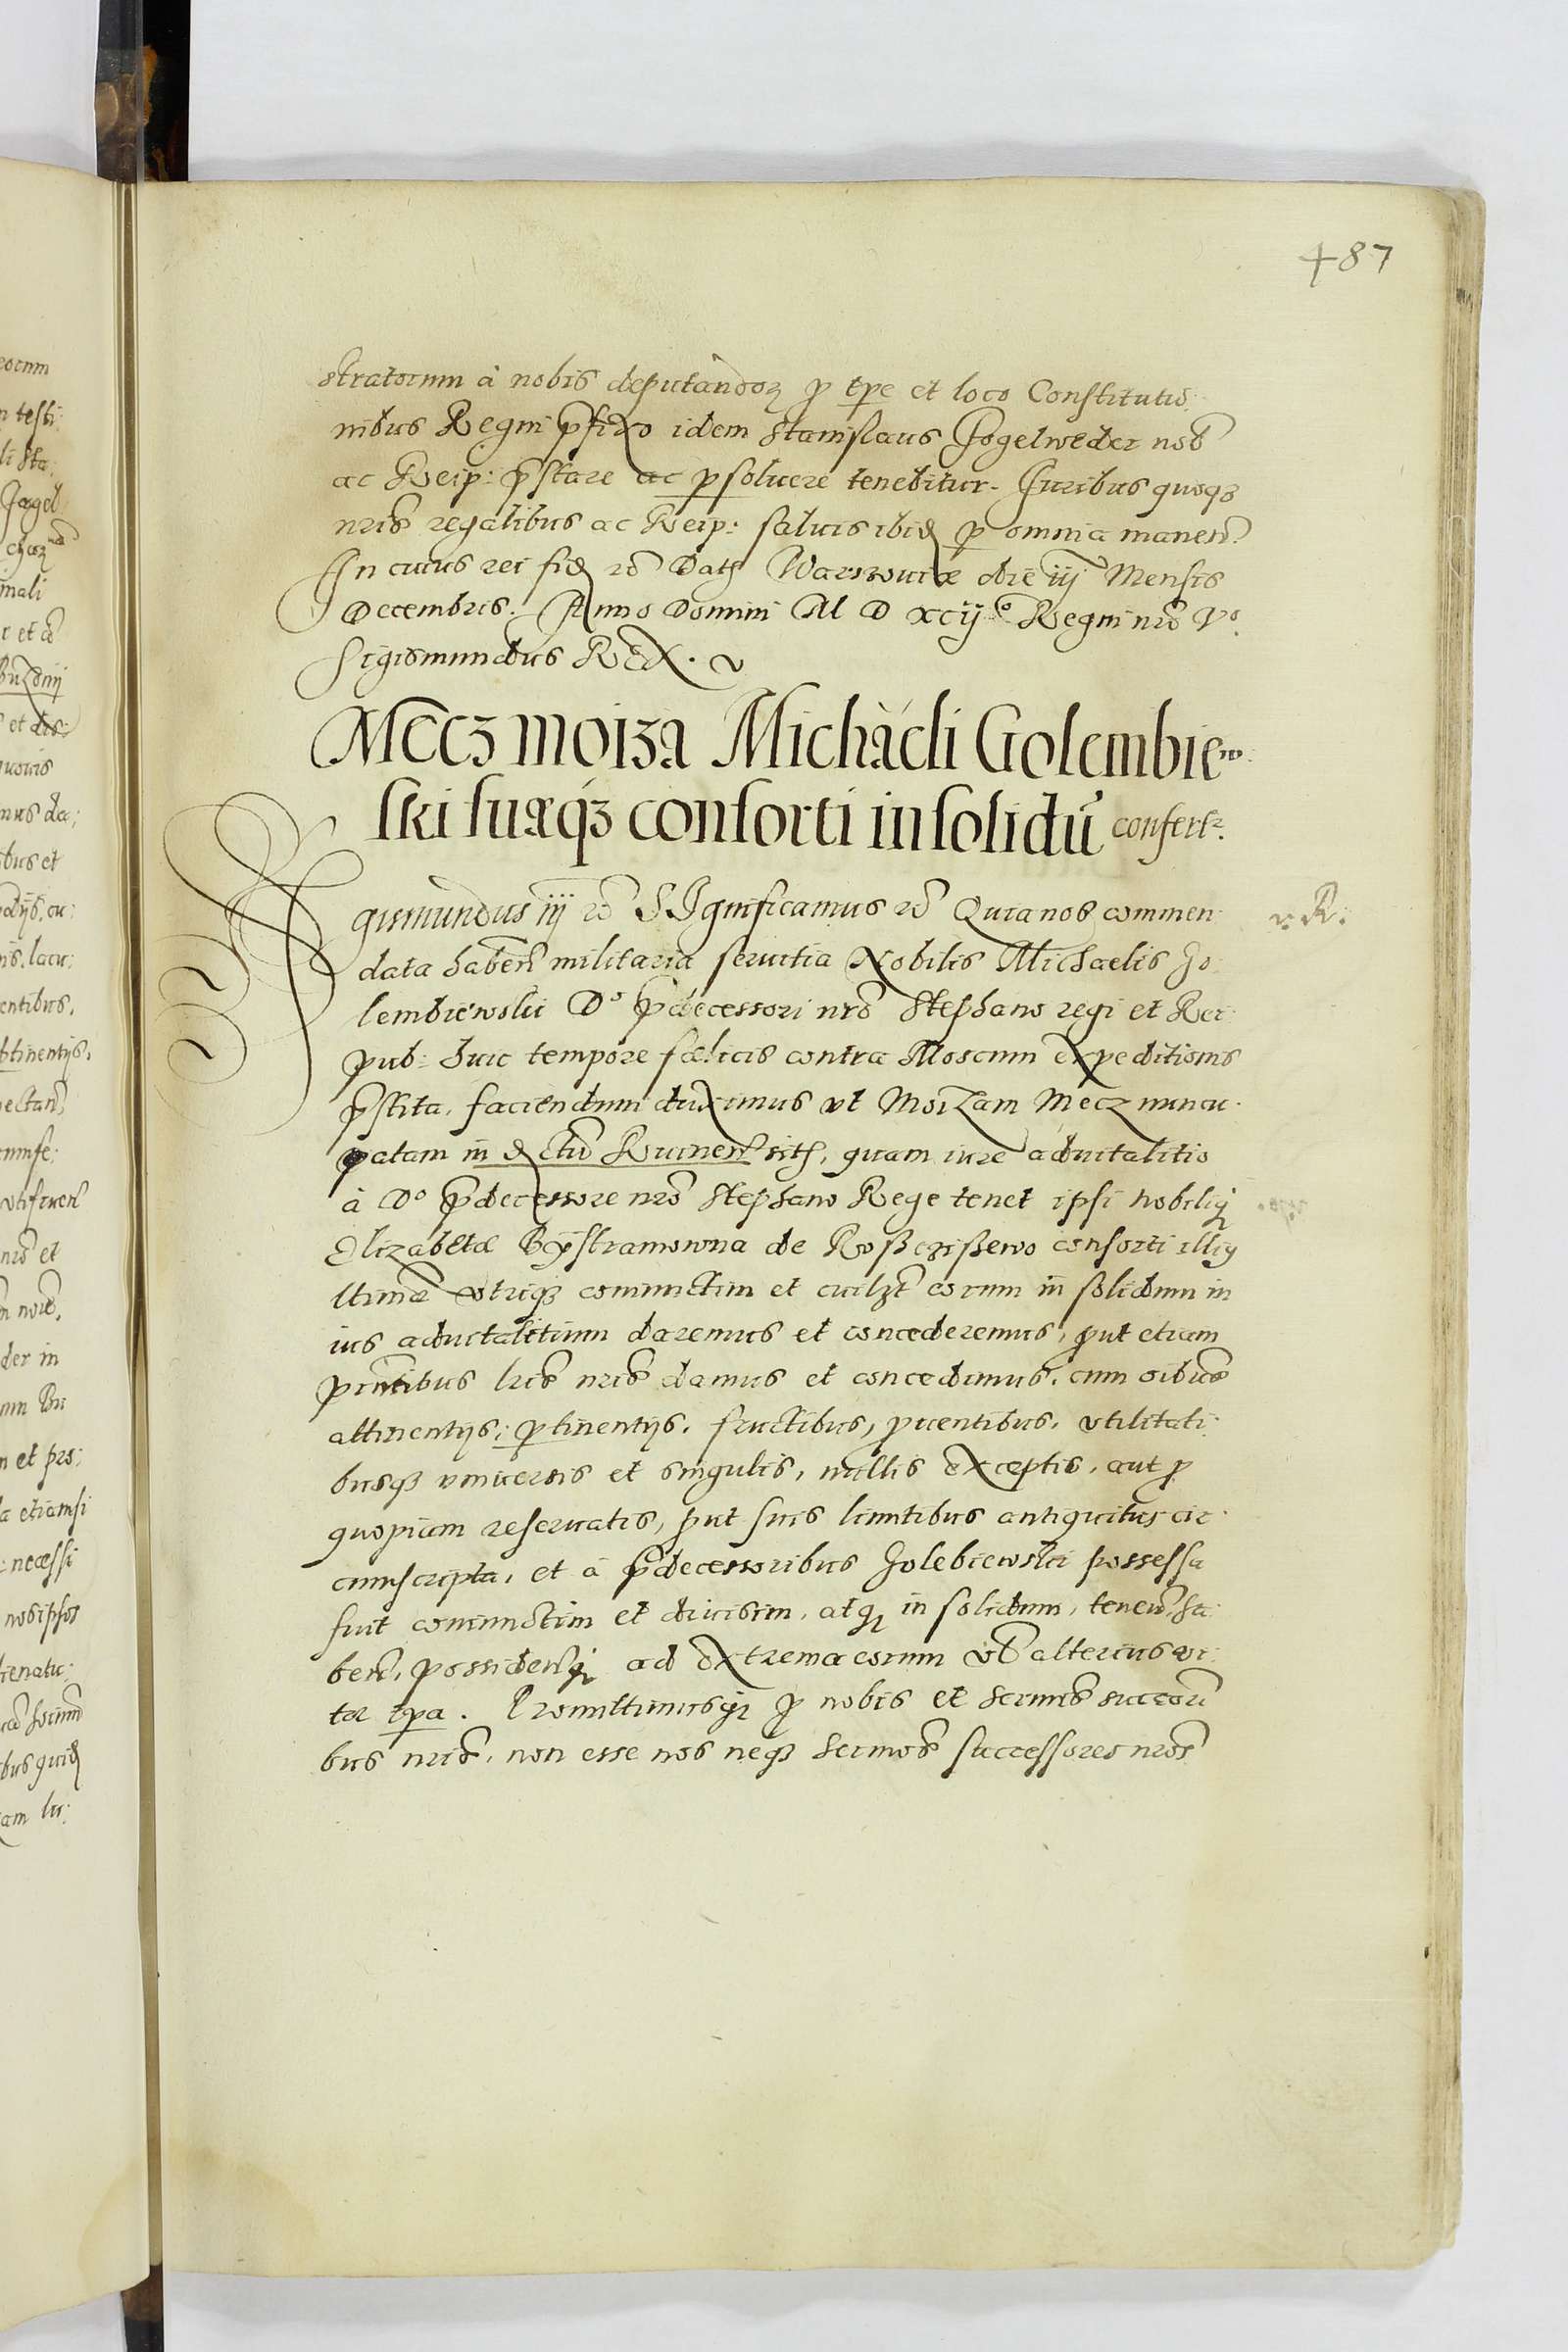 487
stratorum à nobis deputandoꝝ ꝓ tp̄e et loco Constitutio:
nibus Regni p̄fixo idem Stanislaus Fogelweder nob̄
ac Reip: p̄stare ac ꝑsoluere tenebitur. Iuribus quoqꝫ
nr̄is regalibus ac Reip: saluis ibid ꝑ omnia manen̄.
In cuius rei fid ꝛc̄ Datꝭ Warsouiæ die iij Mensis
Decembris. Anno Domini M D xcij.° Regni nr̄o V°.
Sigismundus REX.
Mecz moiza Michaeli Golembiew:
ski suæqꝫ consorti in solidū confertꝛ.
Sigismundus iij ꝛc̄ SIgnificamus ꝛc̄ Quia nos commen:
data haben̄ militaria seruitia Nobilis Michaelis Go:
lembiewski D° p̄decessori nr̄o Stephano regi et Rei:
pub: huic tempore fœlicis contra Moscum expeditionis
p̄stita, faciendum duximus vt Moizam Mecz nuncu:
patam in d ctū Ruinen̄ sitꝭ, quam iure aduitalitio
à D° p̄decessore nr̄o Stephano Rege tenet ipsi nobiliqꝫ
Elizabetæ Bÿstramowna de Roßczißewo consorti illiꝰ
ltimæ vtriqꝫ coniunctim et cuilꝫt eorum in solidum in
ius aduitalitium daremus et concederemus, ꝓut etiam
p̄ntibus lr̄is nr̄is damus et concedimus. cum oībus
attinentijs, ꝑtinentijs, fructibus, ꝓuentibus, vtilitati:
busqꝫ vniuersis et singulis, nullis exceptis, aut ꝓ
quopiam reseruatis, ꝓut suis limitibus antiquitus cir:
cumscripta, et à p̄decessoribus Golebiewski possessa
fuit coniunctim et diuisim, atqꝫ in solidum, tenen̄, ha:
ben̄, possiden̄qꝫ ad extrema eorum vel alterius vi:
tæ tp̄a. Promittimusqꝫ ꝓ nobis et Sermis successori
bus nr̄is, non esse nos neqꝫ Sermos successores nr̄os